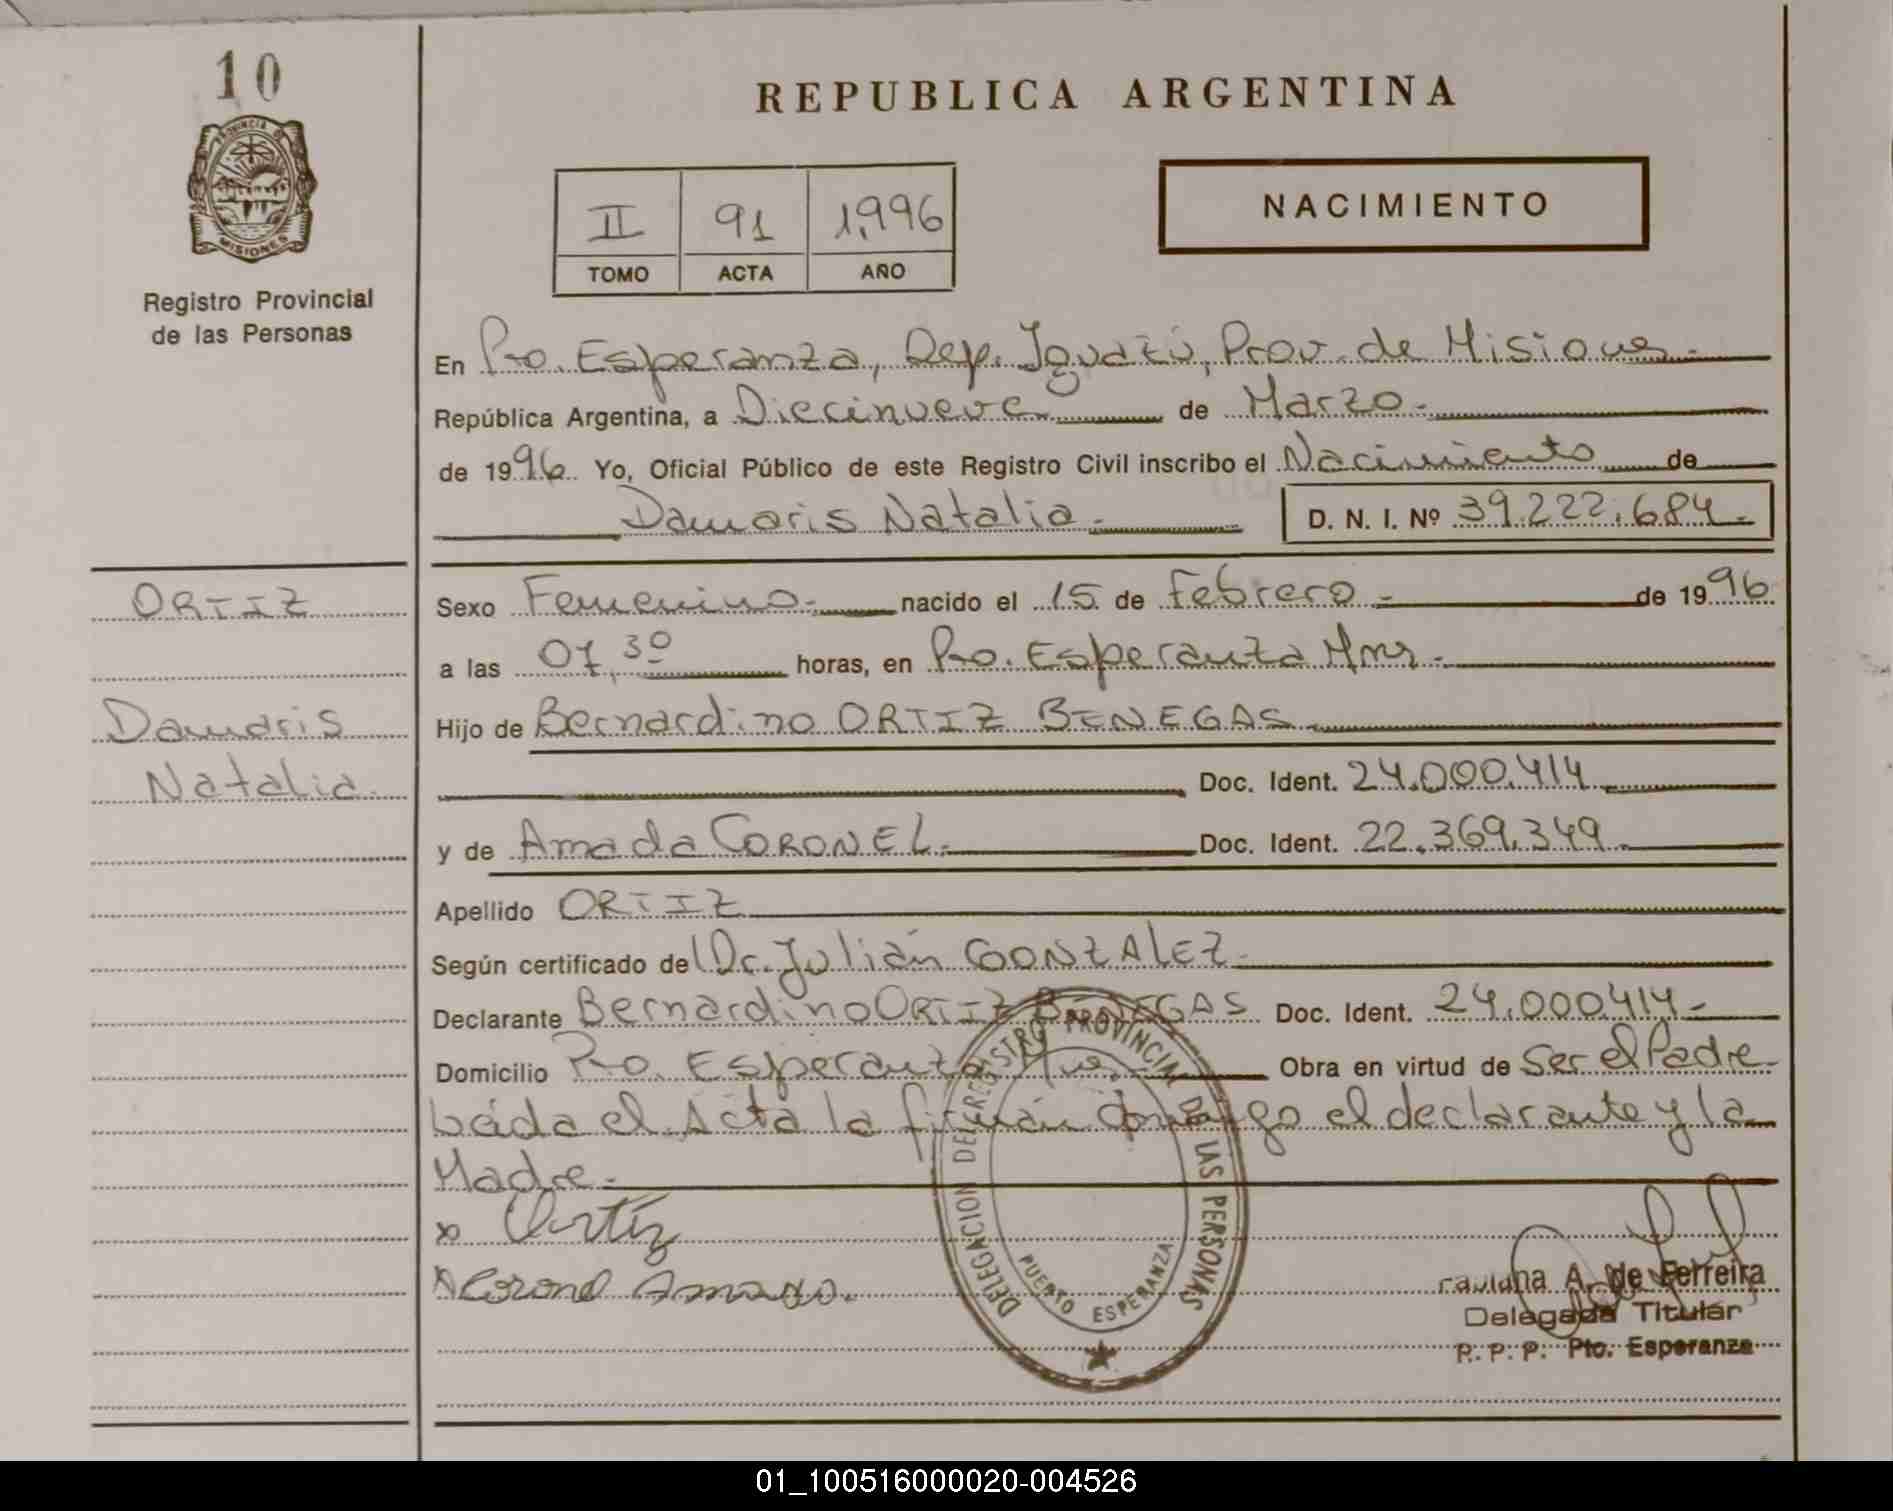 10
PROVINCIA DE
MISIONES
Registro Provincial
de las Personas
REPUBLICA ARGENTINA
II 91 1,996
TOMO ACTA AÑO
NACIMIENTO
En Pto. Esperanza, Dep. Iguazú, Prov. de Misiones.-
República Argentina, a Diecinueve de Marzo.-
de 1996 Yo, Oficial Público de este Registro Civil inscribo el Nacimiento de
Damaris Natalia.- D. N. I. Nº 39.222.684.-
ORTIZ
Sexo Femenino.- nacido el 15 de Febrero.- de 1996
a las 07,30 horas, en Pto. Esperanza Mnes.-
Damaris
Hijo de Bernardino ORTIZ BENEGAS
Natalia.
Doc. Ident. 24.000.414
y de Amada CORONEL.- Doc. Ident. 22.369.349.
Apellido ORTIZ
Según certificado del Dr. Julián GONZALEZ.-
Declarante Bernardino ORTIZ BENEGAS Doc. Ident. 24.000.414-
Domicilio Pto. Esperanza Mnes.- Obra en virtud de Ser el Padre-
Leída el Acta la firman conmigo el declarante y la
Madre.-
x Ortiz
x Coronel Amada.
DELEGACION DE REGISTRO PROVINCIAL DE LAS PERSONAS
PUERTO ESPERANZA
A. de Ferreira
Delegada Titular
P. P. P. Pto. Esperanza
01_100516000020-004526